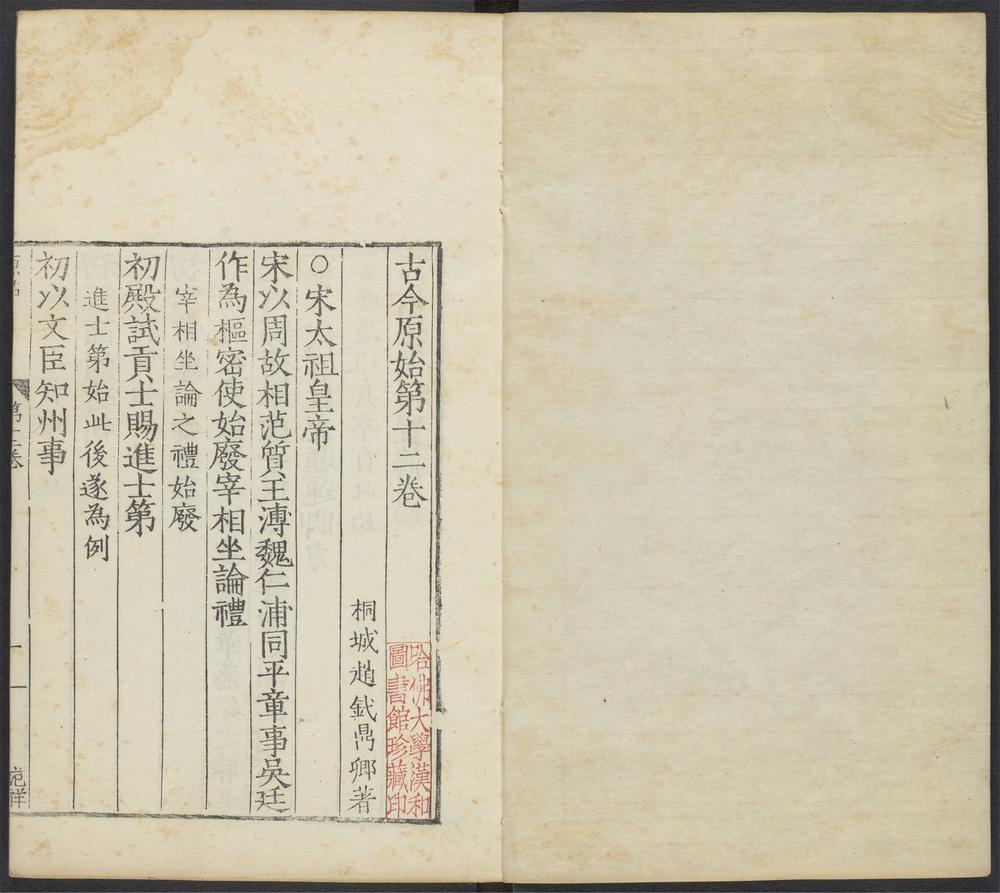 古今原始第十二卷
哈佛大學漢和
圖書館珍藏印
桐城趙釴鼎卿著
○宋太祖皇帝
宋以周故相范質王溥魏仁浦同平章事吳廷
作為樞密使始廢宰相坐論禮
宰相坐論之禮始廢
初殿試貢士賜進士第
進士第始此後遂為例
初以文臣知州事
第十二卷
一